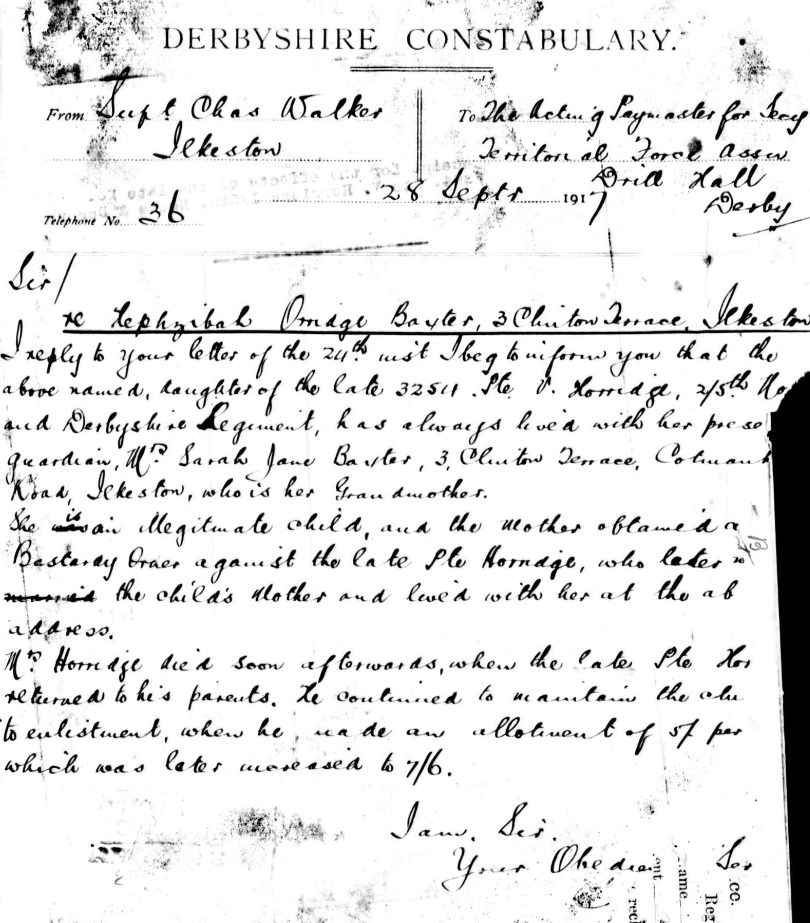 DERBYSHIRE CONSTABULARY.
From Supt. Chas Walker
Ilkeston
To The Acting Paymaster for Secy
Territorial Force Assn
Drill Hall
Derby
28 Septr 1917
Telephone No. 36
Sir/
re Hephzibah Orridge Baxter, 3 Clinton Terrace, Ilkeston
I reply to your letter of the 24th inst I beg to inform you that the
above named, daughter of the late 32511 Pte V. Horridge, 2/5th No
and Derbyshire Regiment, has always lived with her prese
guardian, Mrs Sarah Jane Baxter, 3, Clinton Terrace, Cotmanh
Road, Ilkeston, who is her Grandmother.
She is an illegitimate child, and the mother obtained a
Bastardy Order against the late Pte Horridge, who later
married the child's Mother and lived with her at the ab
address.
Mrs Horridge died soon afterwards, when the late Pte Hor
returned to his parents. He continued to maintain the chi
to enlistment, when he made an allotment of 5/ per
which was later increased to 7/6.
I am. Sir.
Your Obedien Ser